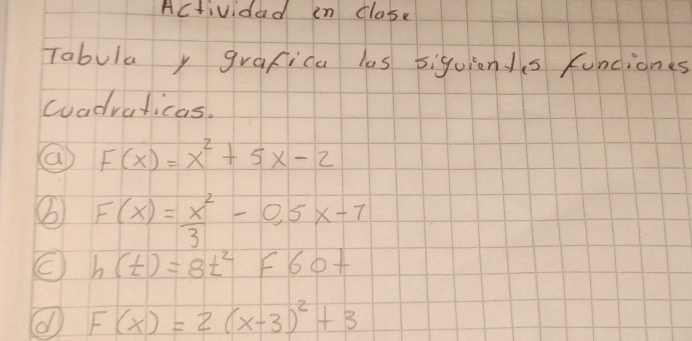 Actividad en clase
Tabula y grafica las siguientes funciones
cuadraticas.
a) F(x) = x² + 5x - 2
b) F(x) = x²/3 - 0,5x - 7
c) h(t) = 8t² F 60t
d) F(x) = 2(x-3)² + 3